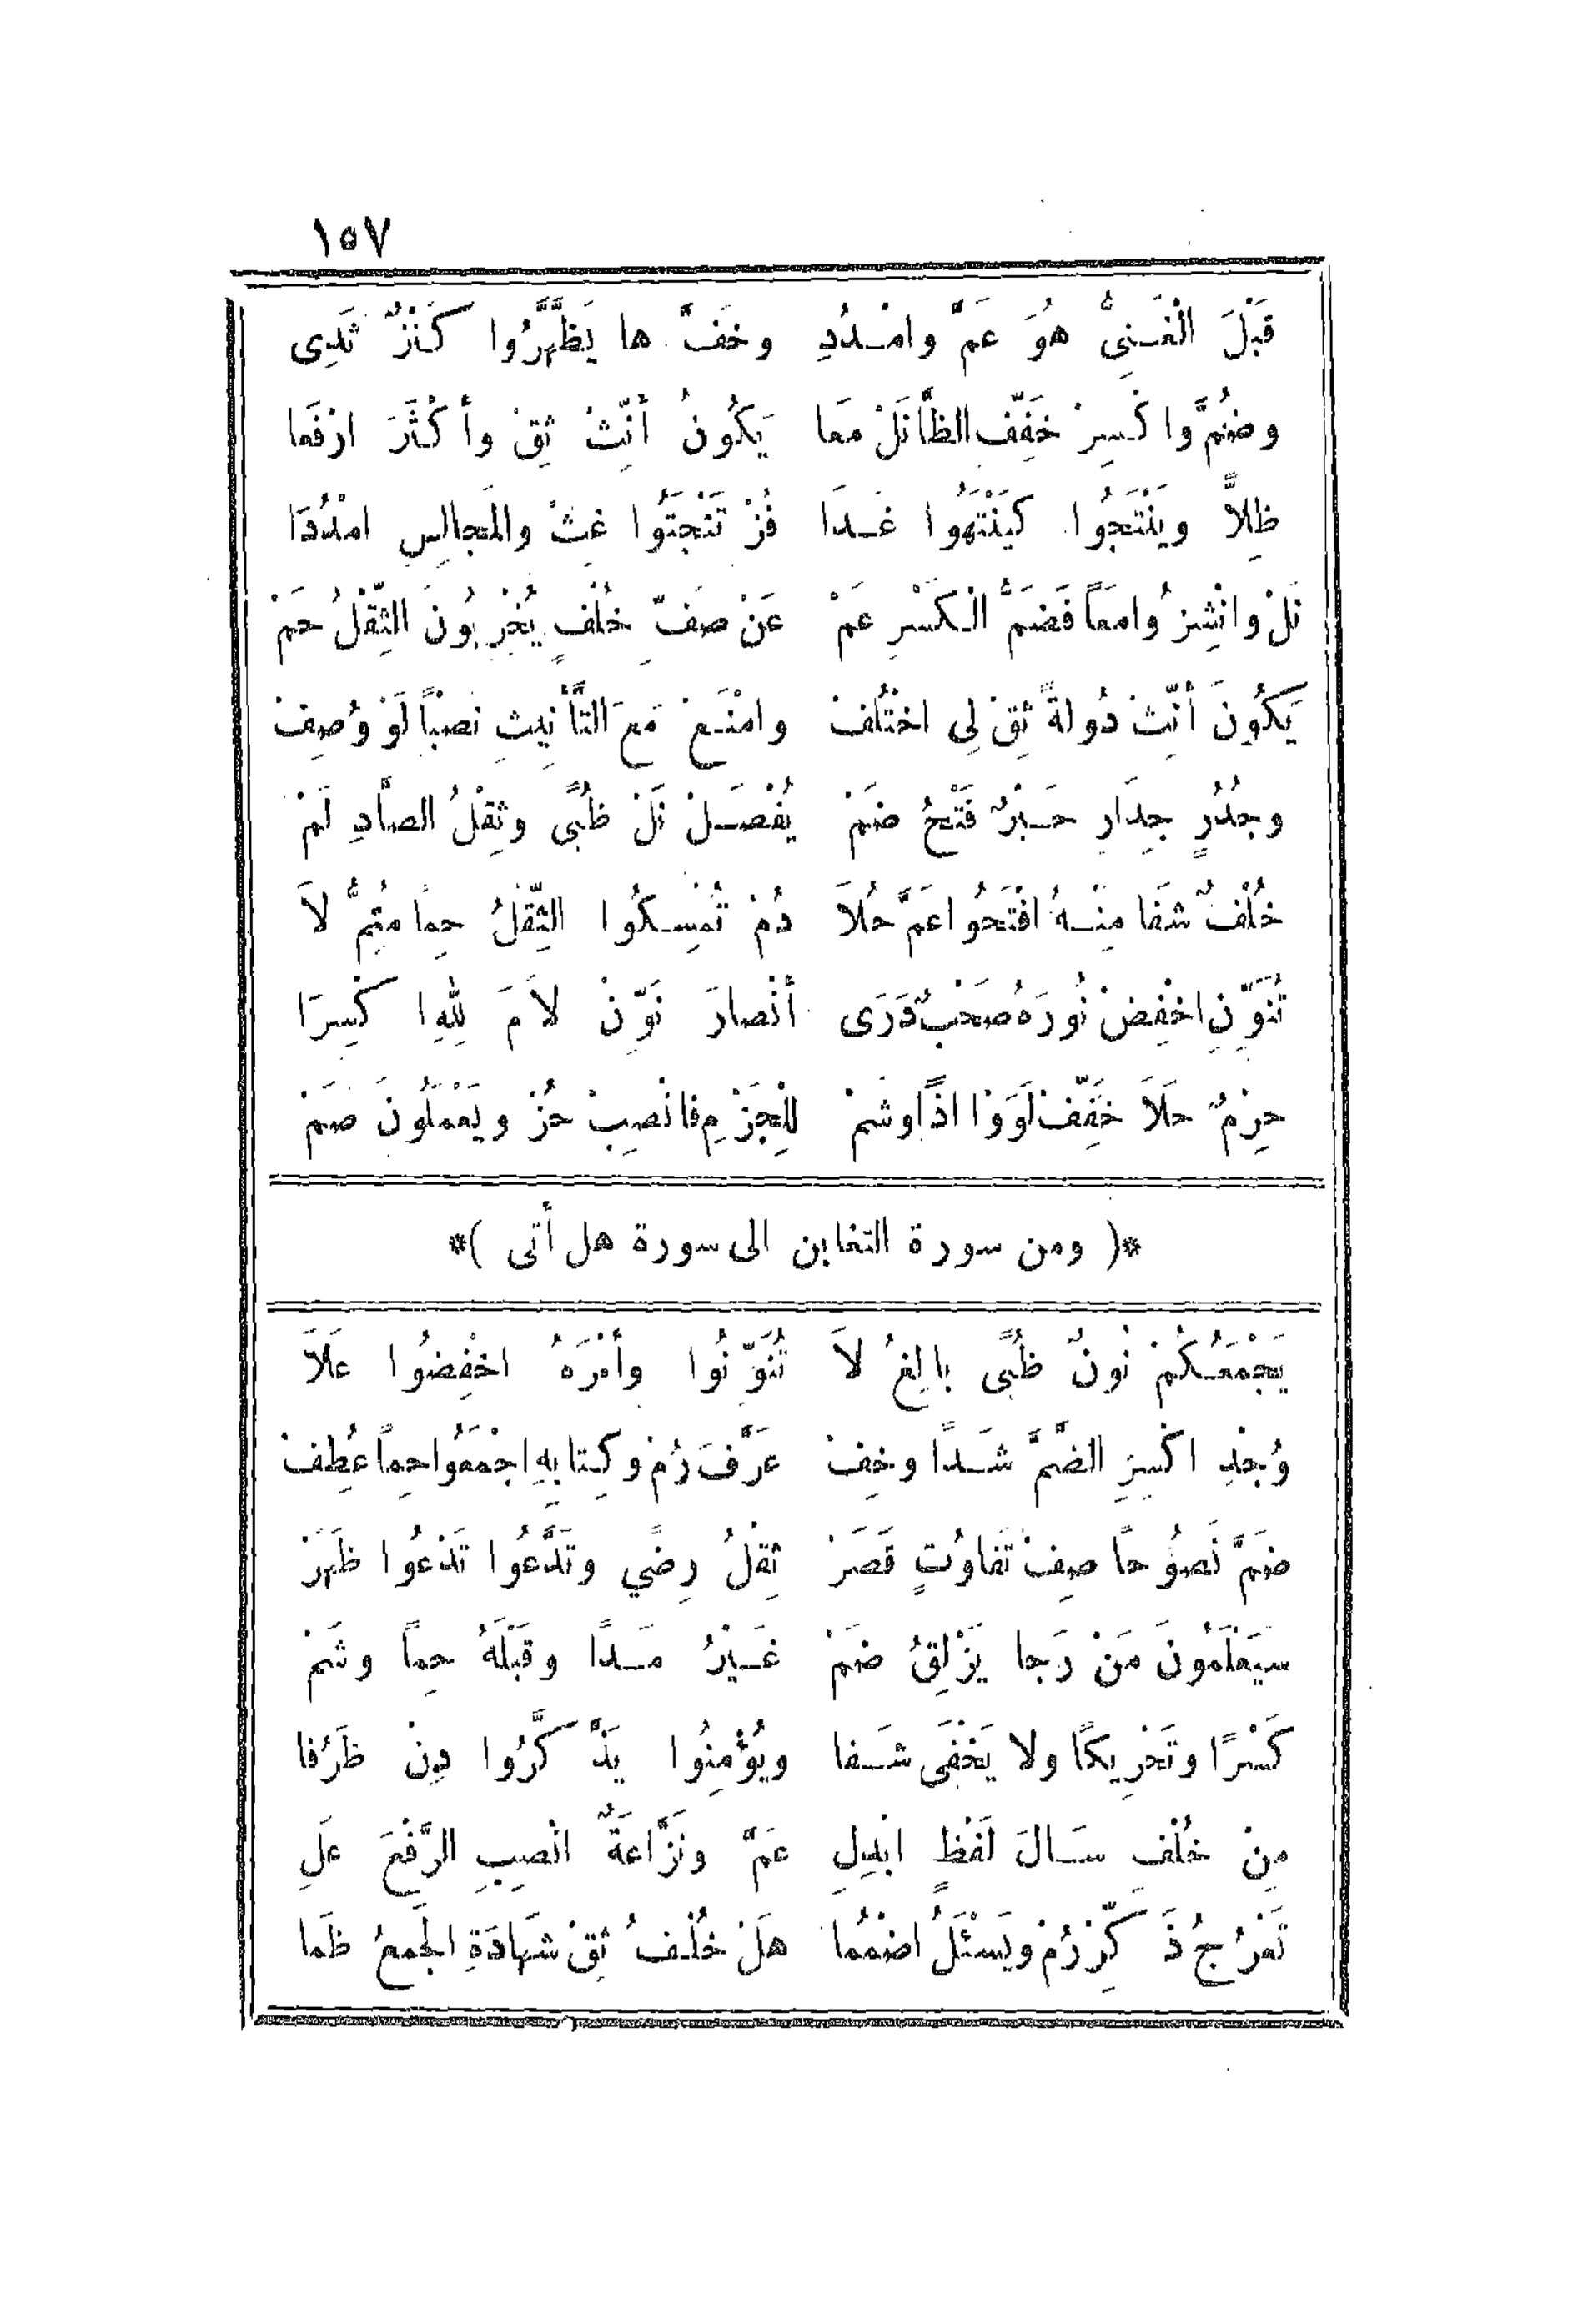 ١٥٧
قَبْلَ الْغَنِيُّ هُوَ عَمَّ وامْدُدِ وخَفَّ ها يَظَّهَّرُوا كَنْزٌ ثَدِى
وضُمَّ واكْسِرْ خَفِّفِ الظَّا نَلْ مَعَا يَكُونُ أَنِّثْ ثِقْ وأَكْثَرَ ارْفَعا
ظِلاًّ ويَنْتَجُوا كَيَنْتَهُوا غَدَا فُزْ تَنْتَجُوا غِثْ والمَجالِسِ امْدُدَا
نَلْ وانْشِزُوا مَعاً فَضَمَّ الْكَسْرِ عَمْ عَنْ صَفِّ خُلْفٍ يُخْرِبُونَ الثِّقْلُ حَمْ
يَكُونَ أَنِّثْ دُولةً ثِقْ لِى اخْتُلِفْ وامْنَعْ مَعَ التَّأْنِيثِ نصْباً لَوْ وُصِفْ
وجُدُرٍ جِدَارِ حَبْرٌ فَتْحُ ضَمْ يُفْصَلْ نَلْ ظُبًى وثِقْلُ الصَّادِ لَمْ
خُلْفٌ شَفَا مِنْهُ افْتَحُوا عَمَّ حُلاَ دُمْ تُمْسِكُوا الثِّقْلُ حِماً مُتِمُّ لاَ
تُنَوِّنِ اخْفِضْ نُورَهُ صَحْبٌ دَرَى أَنْصارَ نَوِّنْ لاَمَ لِلهِ اكْسِرَا
حِرْمٌ حَلاَ خَفِّفْ لَوَوْا اذًا وشَمْ لِلْجَزْمِ فانْصِبْ حُزْ ويَعْمَلُونَ صَمْ
*( ومن سورة التغابن الى سورة هل أتى )*
يَجْمَعُكُمْ نُونٌ ظُبًى بالِغُ لاَ تُنَوِّنُوا وأَمْرَهُ اخْفِضُوا عَلاَ
وُجْدِ اكْسِرِ الضَّمَّ شَدًا وخِفْ عَرَّفَ رُمْ وكِتابِهِ اجْمَعُوا حِماً عُطِفْ
ضَمَّ نَصُوحاً صِفْ تَفاوُتٍ قَصَرْ ثِقْلُ رِضًي وتَدَّعُوا تَدْعُوا ظَهَرْ
سَيَعْلَمُونَ مَنْ رَجا يَزْلِقُ ضَمْ غَيْرُ مَدًا وقَبْلَهُ حِماً وشَمْ
كَسْرًا وتَحْرِيكًا ولا يَخْفَى شَفا ويُؤْمِنُوا يَذَّكَّرُوا دِنْ ظَرُفا
مِنْ خُلْفِ سَالَ لَفْظٍ ابْدِلِ عَمَّ ونَزَّاعَةٌ انْصِبِ الرَّفْعَ عَلِ
تَعْرُجُ ذَكِّرْ رُمْ ويَسْئَلُ اضْمُمَا هَلْ خُلْفُ ثِقْ شَهَادَةِ الجَمعُ ظَما